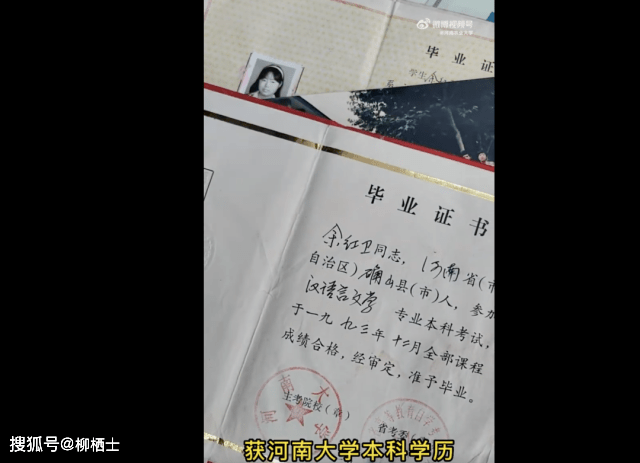 微博视频号
毕业证
学生余
毕业证书
余红卫同志，河南省（市
自治区）确山县（市）人，参加
汉语言文学 专业本科考试，
于一九九三年十二月全部课程
成绩合格，经审定，准予毕业。
河南大学
主考院校（章）
省考委
获河南大学本科学历
搜狐号@柳栖士